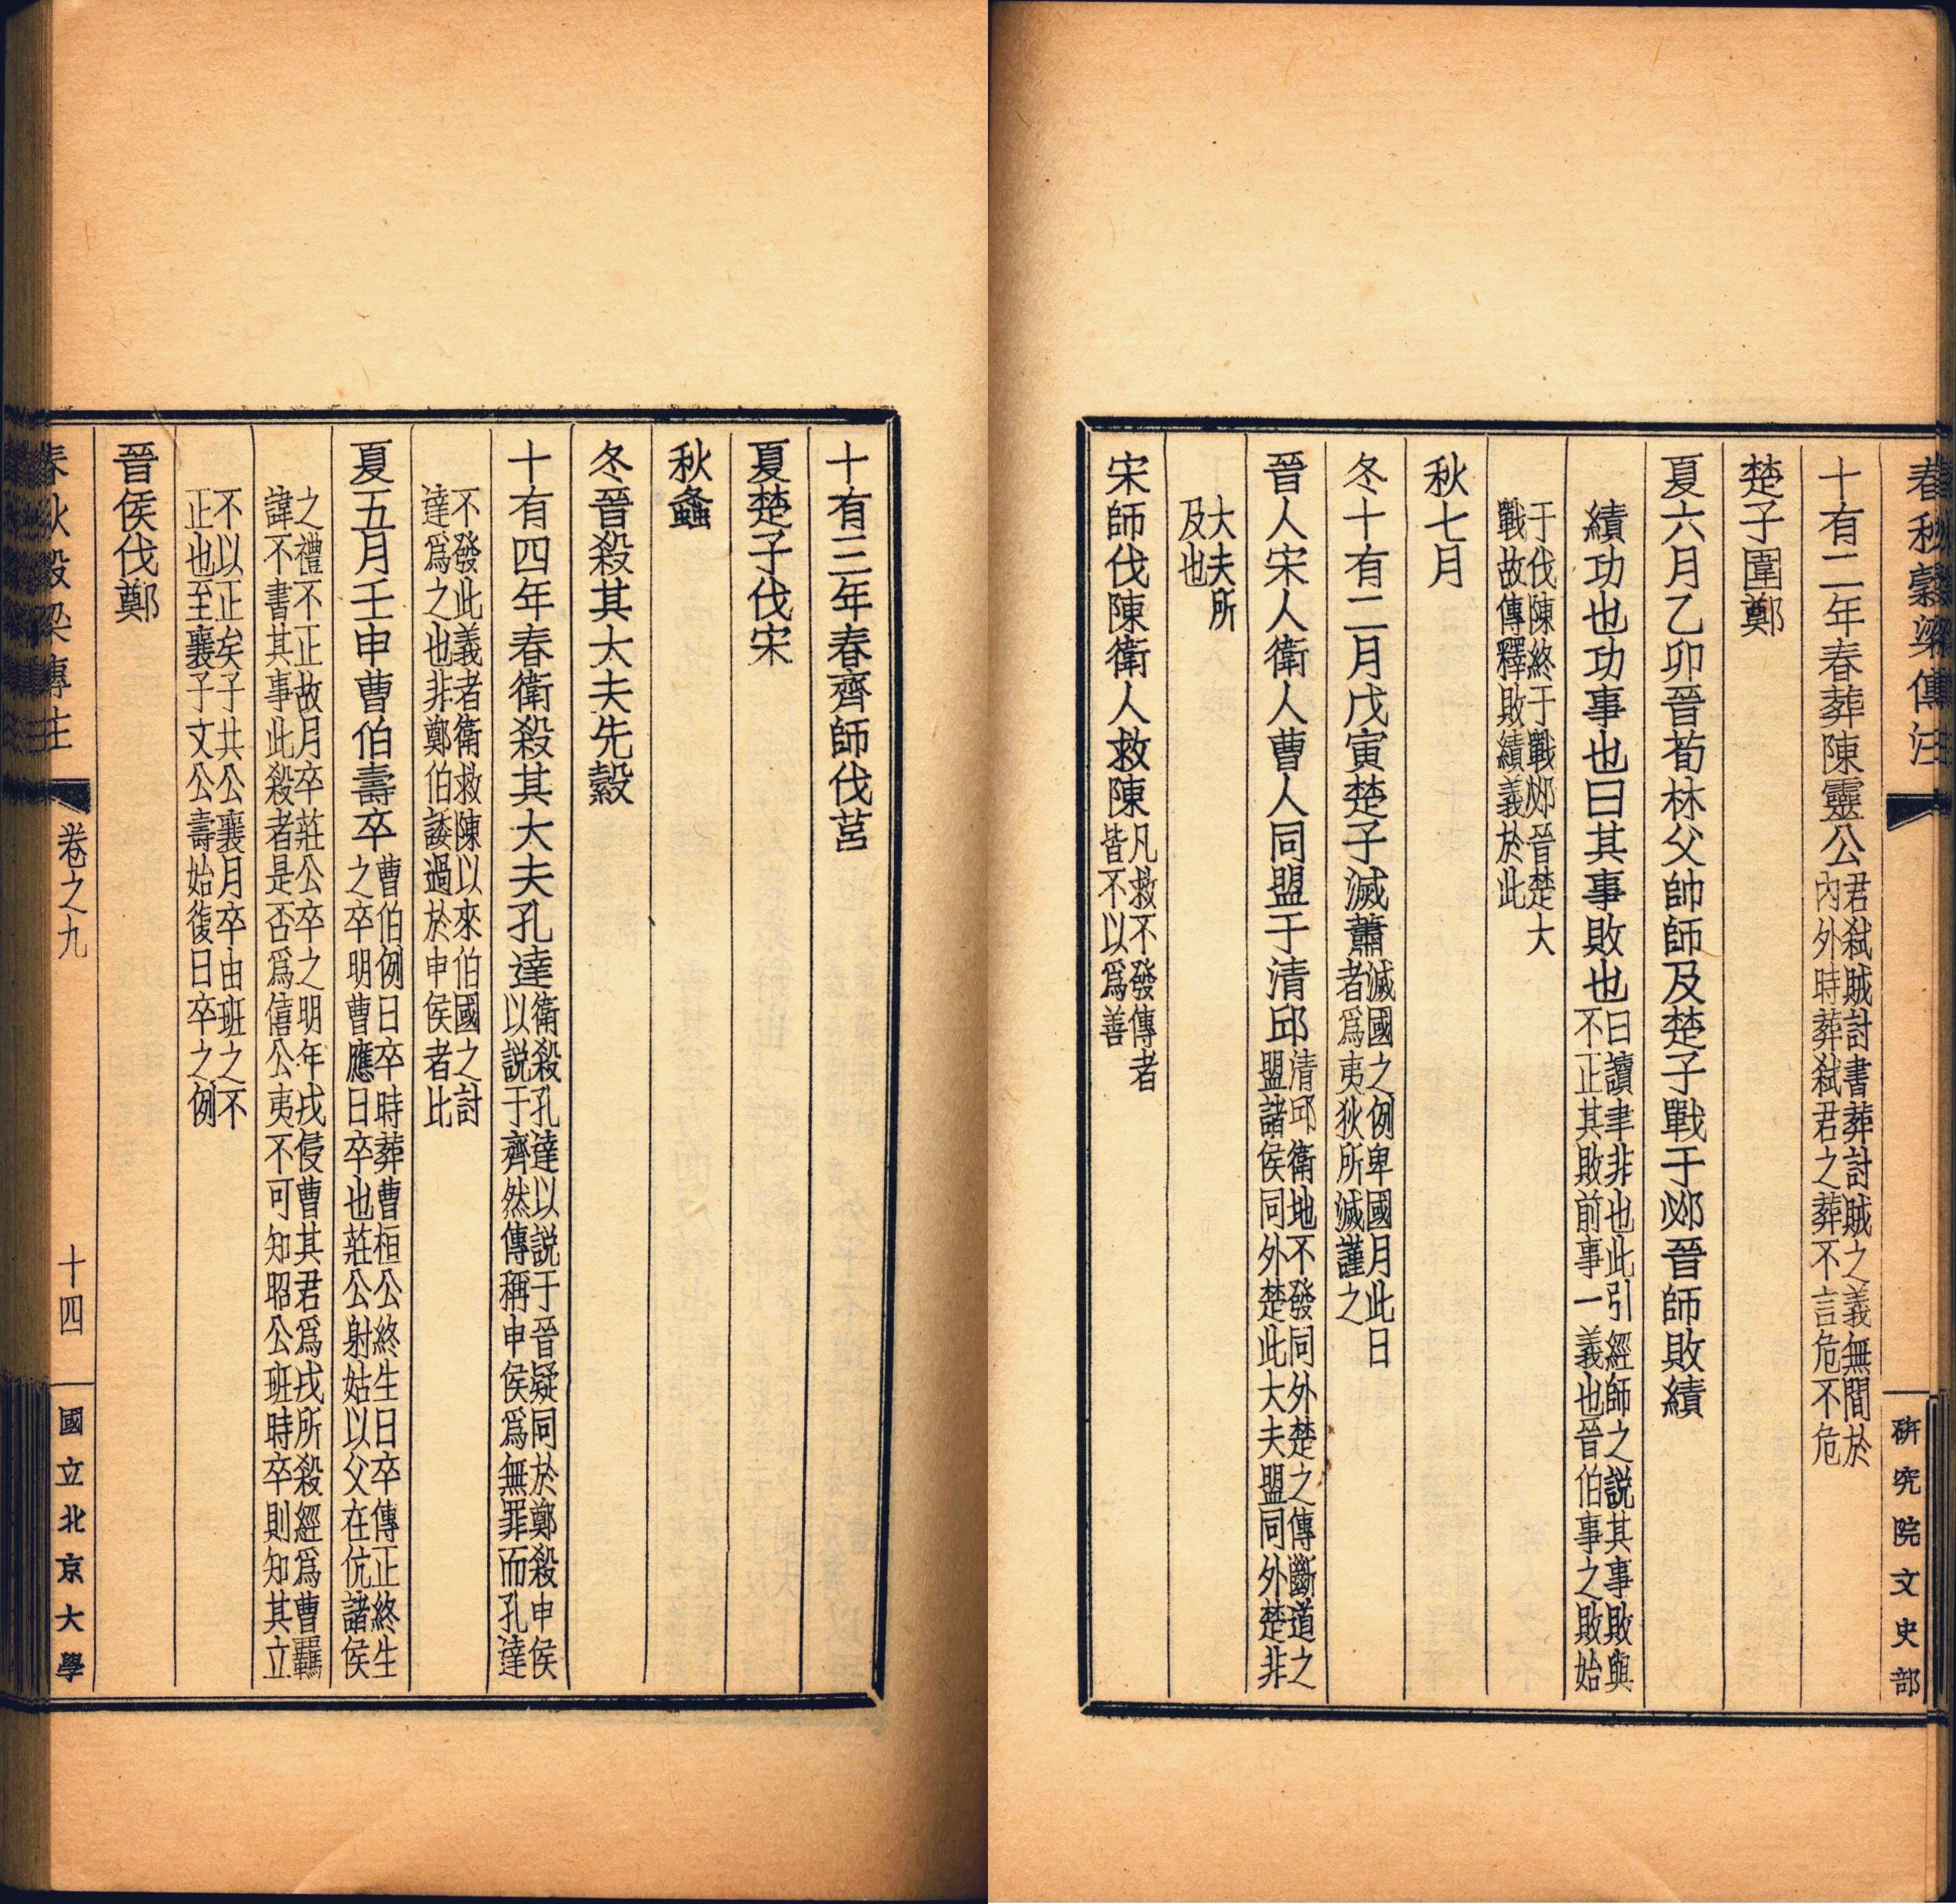 春秋穀梁傳注
研究院文史部
十有二年春葬陳靈公君弑賊討書葬討賊之義無間於
內外時葬弑君之葬不言危不危
楚子圍鄭
夏六月乙卯晉荀林父帥師及楚子戰于邲晉師敗績
績功也功事也曰其事敗也曰讀聿非也此引經師之説其事敗與
不正其敗前事一義也晉伯事之敗始
于伐陳終于戰邲晉楚大
戰故傳釋敗績義於此
秋七月
冬十有二月戊寅楚子滅蕭滅國之例卑國月此日
者爲夷狄所滅謹之
晉人宋人衛人曹人同盟于清邱清邱衛地不發同外楚之傳斷道之
盟諸侯同外楚此大夫盟同外楚非
大夫所
及也
宋師伐陳衛人救陳凡救不發傳者
皆不以爲善
十有三年春齊師伐莒
夏楚子伐宋
秋螽
冬晉殺其大夫先縠
十有四年春衛殺其大夫孔達衛殺孔達以説于晉疑同於鄭殺申侯
以説于齊然傳稱申侯爲無罪而孔達
不發此義者衛救陳以來伯國之討
達爲之也非鄭伯諉過於申侯者比
夏五月壬申曹伯壽卒曹伯例日卒時葬曹桓公終生日卒傳正終生
之卒明曹應日卒也莊公射姑以父在伉諸侯
之禮不正故月卒莊公卒之明年戎侵曹其君爲戎所殺經爲曹羈
諱不書其事此殺者是否爲僖公夷不可知昭公班時卒則知其立
不以正矣子共公襄月卒由班之不
正也至襄子文公壽始復日卒之例
晉侯伐鄭
春秋穀梁傳注
卷之九
十四
國立北京大學